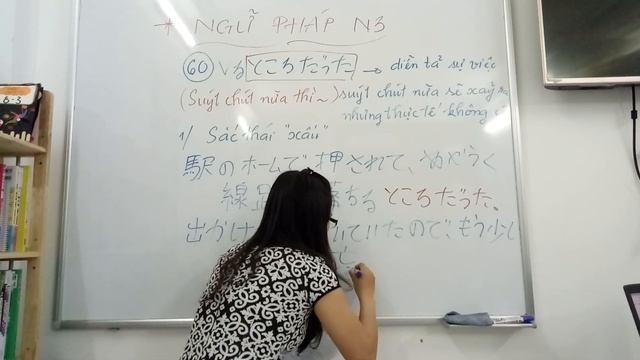 * NGUÃ PHÁP N3
60 Vる ところだった → diễn tả sự việc
(Suýt chút nữa thì~) suýt chút nữa sẽ xảy ra
nhưng thực tế không
1/ Sắc thái "xấu"
駅のホームで押されて、あやうく
線 落ちるところだった。
出かけ いていたので、もう少し